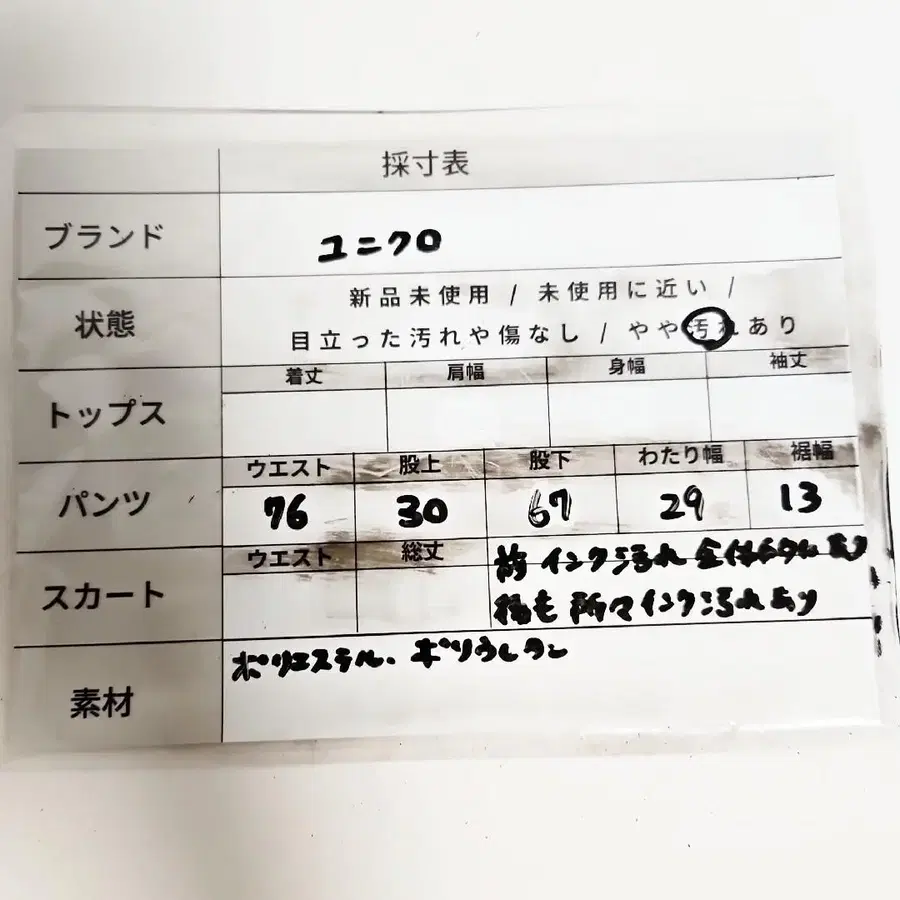 採寸表
ブランド ユニクロ
新品未使用 / 未使用に近い /
状態
目立った汚れや傷なし / やや汚れあり
着丈 肩幅 身幅 袖丈
トップス
ウエスト 股上 股下 わたり幅 裾幅
パンツ 76 30 67 29 13
ウエスト 総丈 前 インク汚れ あり
スカート 所々インク汚れあり
ポリエステル、ポリウレタン
素材